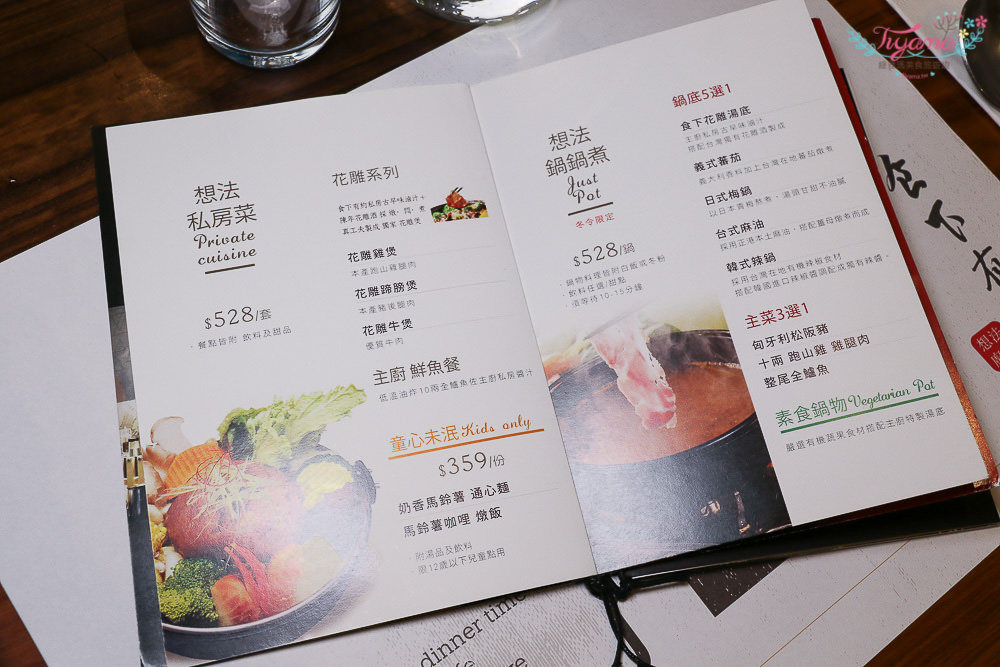 想法
私房菜
Private
cuisine
$528/套
・餐點皆附 飲料及甜品
花雕系列
食下有約私房古早味滷汁+
陳年花雕酒 採 燉・悶・煮
真工夫製成 獨家 花雕煲
花雕雞煲
本產跑山雞腿肉
花雕蹄膀煲
本產豬後腿肉
花雕牛煲
優質牛肉
主廚 鮮魚餐
低溫油炸10兩全鱸魚佐主廚私房醬汁
童心未泯 Kids only
$359/份
奶香馬鈴薯 通心麵
馬鈴薯咖哩 燉飯
・附湯品及飲料
・限12歲以下兒童點用
想法
鍋鍋煮
Just
Pot
冬令限定
$528/鍋
・鍋物料理皆附白飯或冬粉
・飲料任選/甜點
・須等待10-15分鐘
鍋底5選1
食下花雕湯底
主廚私房古早味滷汁
搭配台灣獨有花雕酒製成
義式蕃茄
義大利香料加上台灣在地蕃茄燉煮
日式梅鍋
以日本青梅熬煮，湯頭甘甜不油膩
台式麻油
採用正港本土麻油，搭配薑母燉煮而成
韓式辣鍋
採用台灣在地有機辣椒食材
搭配韓國進口辣椒醬調配成獨有辣醬。
主菜3選1
匈牙利松阪豬
十兩 跑山雞 雞腿肉
整尾全鱸魚
素食鍋物 Vegetarian Pot
嚴選有機蔬果食材搭配主廚特製湯底
食下有
想法
dinner time
Tiyama